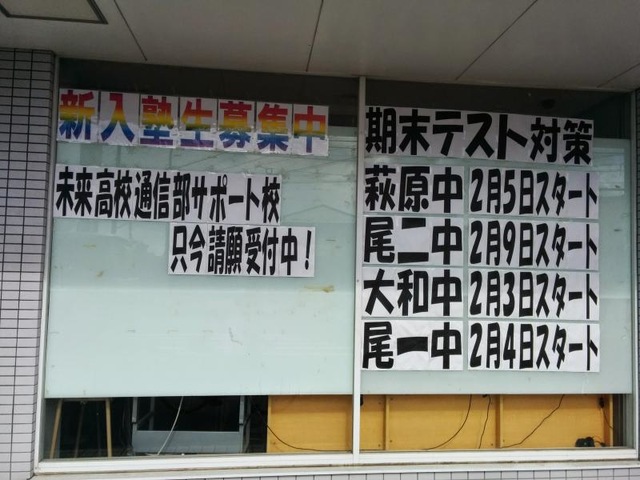 新入塾生募集中
未来高校通信部サポート校
只今請願受付中！
期末テスト対策
萩原中 2月5日スタート
尾二中 2月9日スタート
大和中 2月3日スタート
尾一中 2月4日スタート